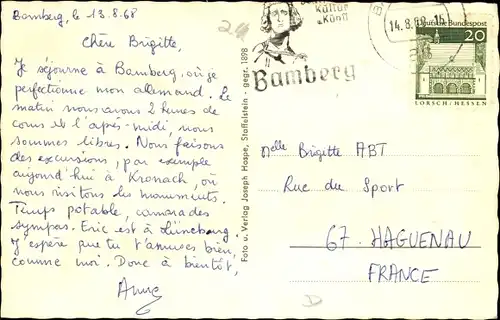 Bamberg, le 13.8.68
Chère Brigitte,
Je séjourne à Bamberg, où je
perfectionne mon allemand. Le
matin nous avons 2 heures de
cours et l'après-midi, nous
sommes libres. Nous faisons
des excursions, par exemple
aujourd'hui à Kronach, où
nous visitons les monuments.
Temps potable, camarades
sympas. Eric est à Lüneburg
J'espère que tu t'amuses bien,
comme moi. Donc à bientôt,
Anne
Foto u. Verlag Joseph Hospe, Staffelstein - gegr. 1898
Kultur
Kunst
Bamberg
14.8.68-15
Deutsche Bundespost
20
LORSCH/HESSEN
Melle Brigitte ABT
Rue du Sport
67. HAGUENAU
FRANCE
D